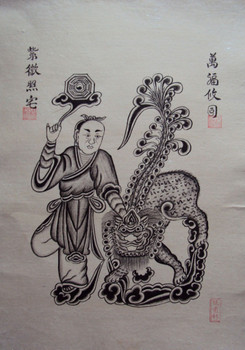 萬福攸同
紫微照宅